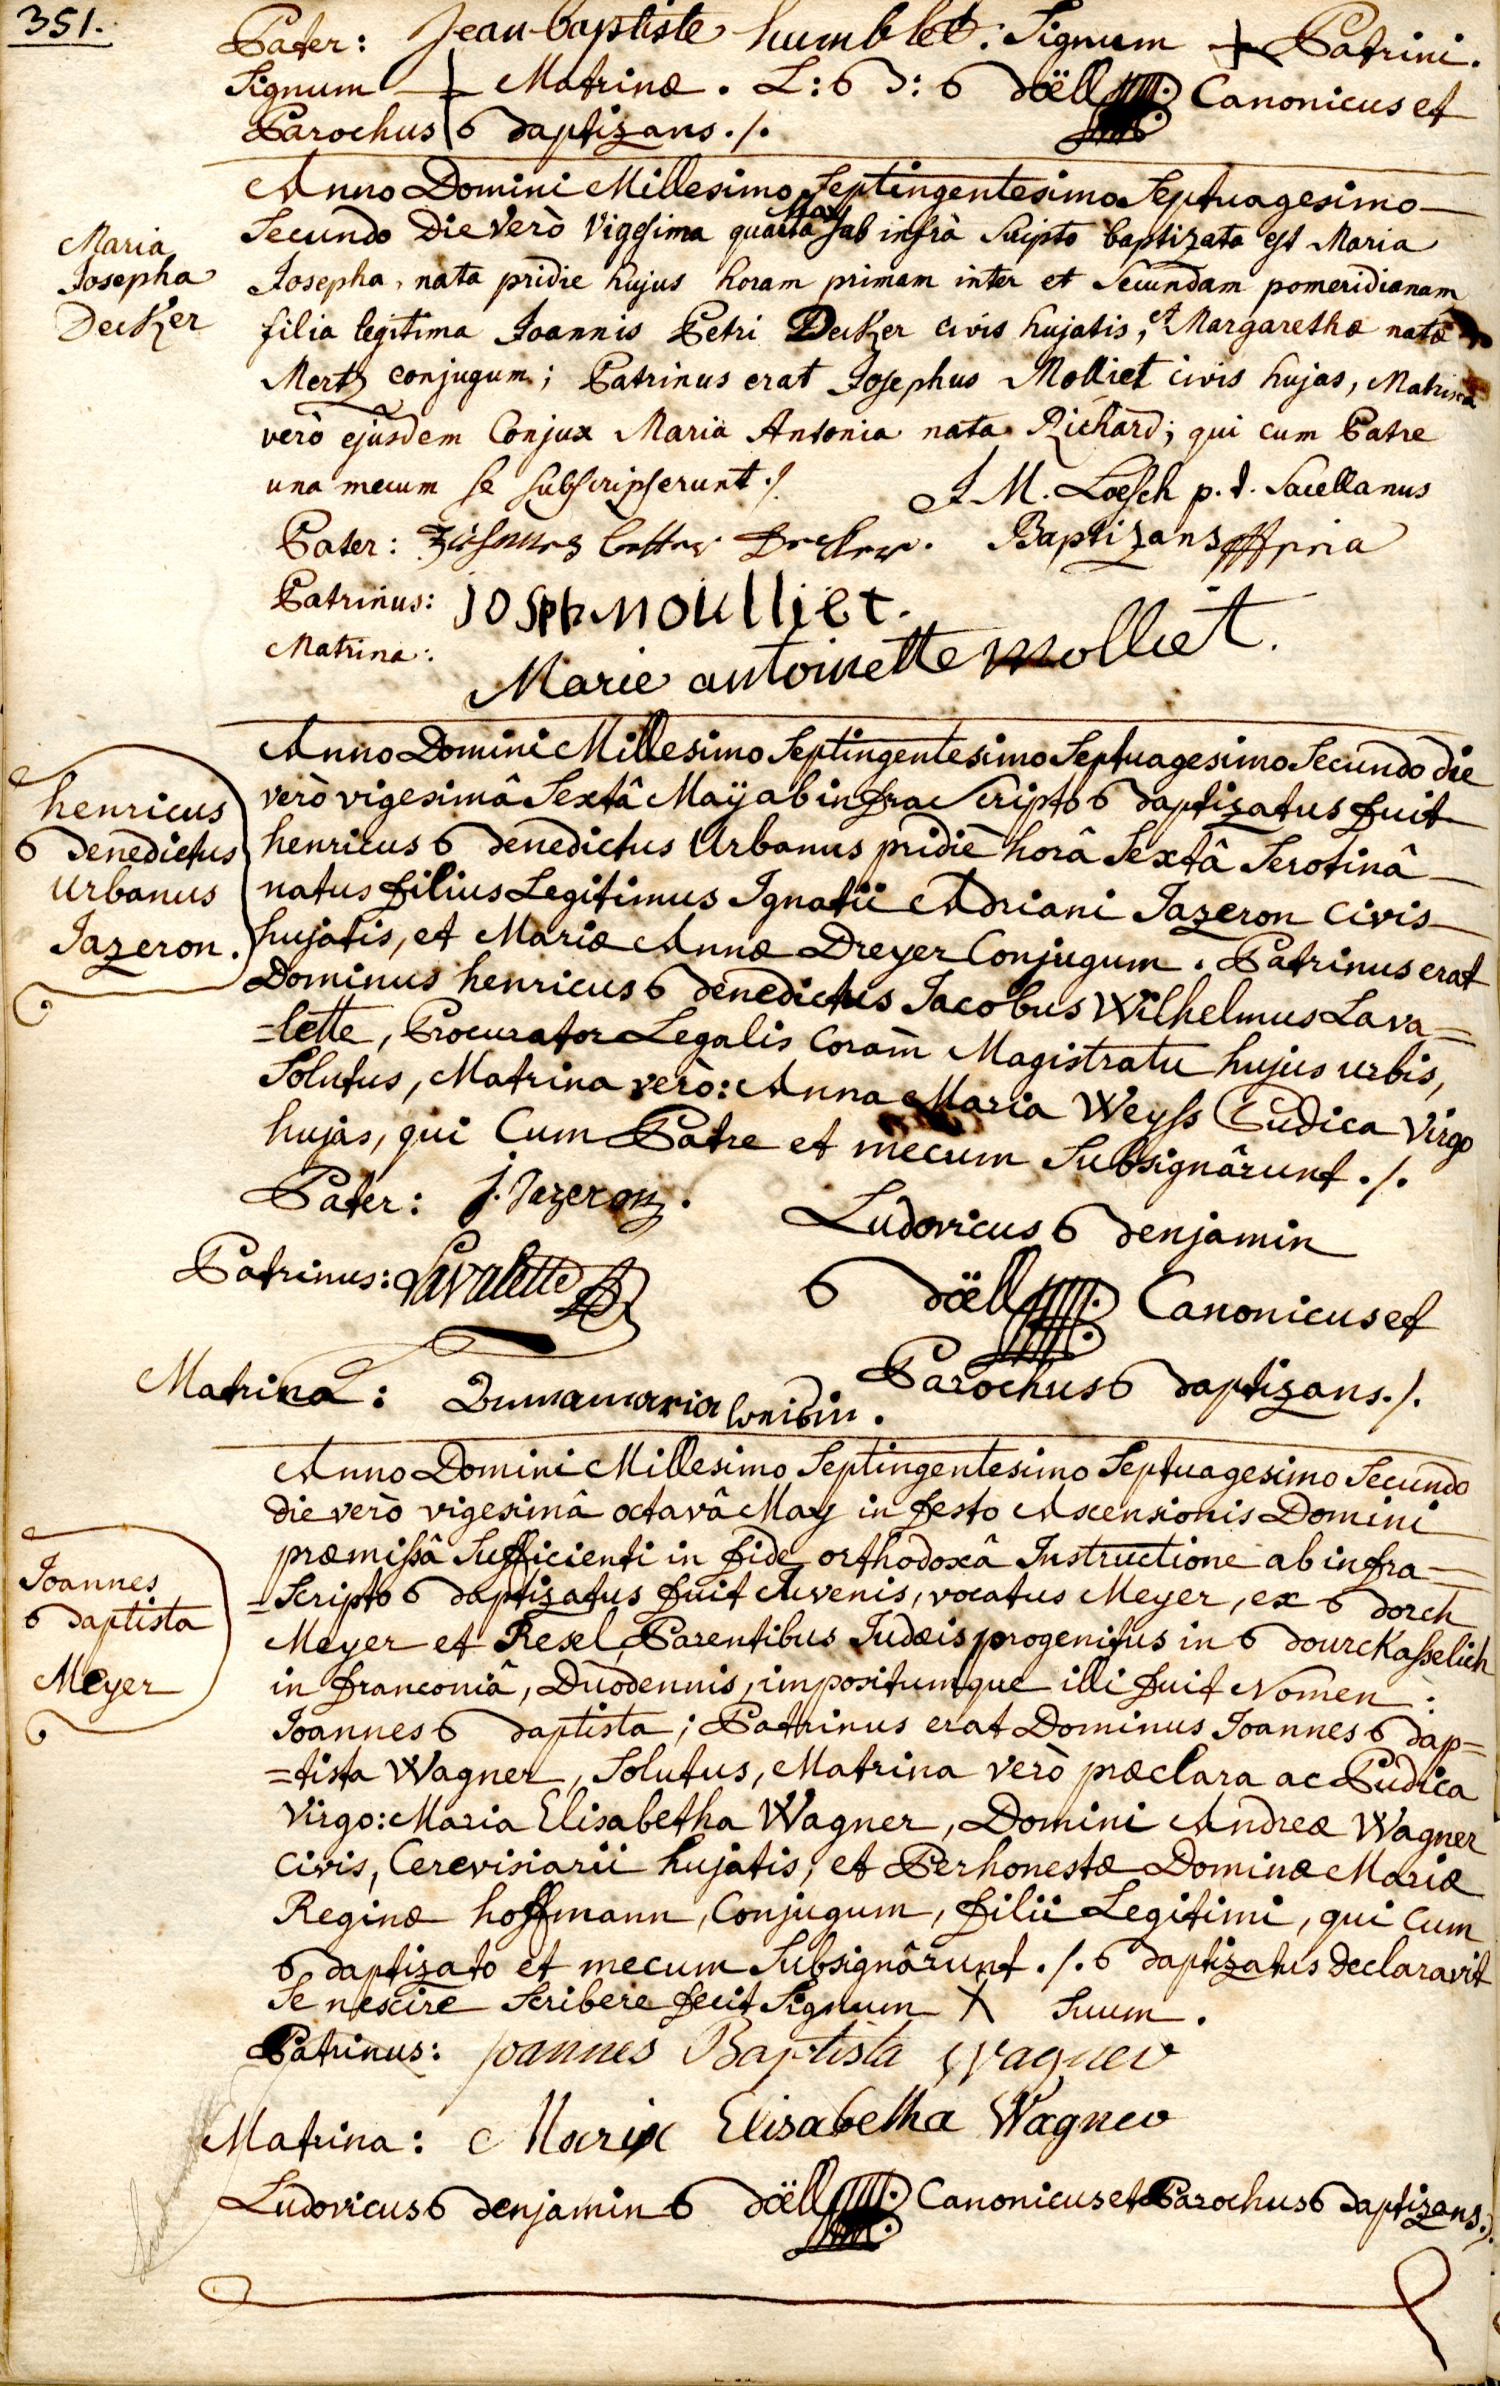 351.
Pater: Jean baptiste humblet: Signum + Patrini.
Signum + Matrinæ. L: B: Böell Canonicus et
Parochus Baptizans ./.
Anno Domini Millesimo Septingentesimo Septuagesimo
Secundo Die Verò Vigesima quarta May ab infrà scripto baptizata est Maria
Josepha, nata pridie hujus horam primam inter et secundam pomeridianam
filia legitima Joannis Petri Decker civis hujatis, et Margarethæ natæ
Mertz conjugum; Patrinus erat Josephus Molliet civis hujas, Matrina
verò ejusdem Conjux Maria Antonia nata Richard; qui cum Patre
una mecum se subscripserunt ./.
Maria
Josepha
Decker
J M. Loesch p. t. Sacellanus
Baptizans mpria
Pater: Decker.
Patrinus: joseph moulliet.
Matrina: Marie antoinette molliet.
Anno Domini Millesimo Septingentesimo Septuagesimo Secundo die
verò vigesimâ Sextâ Maÿ ab infra Scripto Baptizatus fuit
henricus Benedictus Urbanus pridie horâ Sextâ Serotinâ
natus filius Legitimus Ignatii Adriani Jazeron Civis
hujatis, et Mariæ Annæ Dreyer Conjugum. Patrinus erat
Dominus henricus Benedictus Jacobus Wilhelmus Lava=
=lette, Procurator Legalis Coram Magistratu hujus urbis,
Solutus, Matrina verò: Anna Maria Weyss Pudica Virgo
hujas, qui Cum Patre et mecum Subsignârunt ./.
henricus
Benedictus
Urbanus
Jazeron.
Pater: j. Jazeron.
Ludovicus Benjamin
Patrinus: Lavalette
Böell Canonicus et
Parochus Baptizans ./.
Matrina: Annamaria
Anno Domini Millesimo Septingentesimo Septuagesimo Secundo
die verò vigesimâ octavâ May in festo Ascensionis Domini
præmissâ Sufficienti in fide orthodoxâ Instructione ab infra=
=Scripto Baptizatus fuit Iuvenis, vocatus Meyer, ex Borch
Meyer et Resel, Parentibus Judæis progenitus in Bourckasselich
in franconiâ, Duodennis, impositumque illi fuit Nomen:
Joannes Baptista; Patrinus erat Dominus Joannes Bap=
=tista Wagner, Solutus, Matrina verò præclara ac Pudica
Virgo: Maria Elisabetha Wagner, Domini Andreæ Wagner
Civis, Cerevisiarii hujatis, et Perhonestæ Dominæ Mariæ
Reginæ hoffmann, Conjugum, filii Legitimi, qui Cum
Baptizato et mecum Subsignârunt ./. Baptizatus declaravit
Se nescire Scribere fecit Signum X Suum.
Joannes
Baptista
Meyer
Patrinus: Joannes Baptista Wagner
Matrina: Maria Elisabetha Wagner
Ludovicus Benjamin Böell Canonicus et Parochus Baptizans ./.